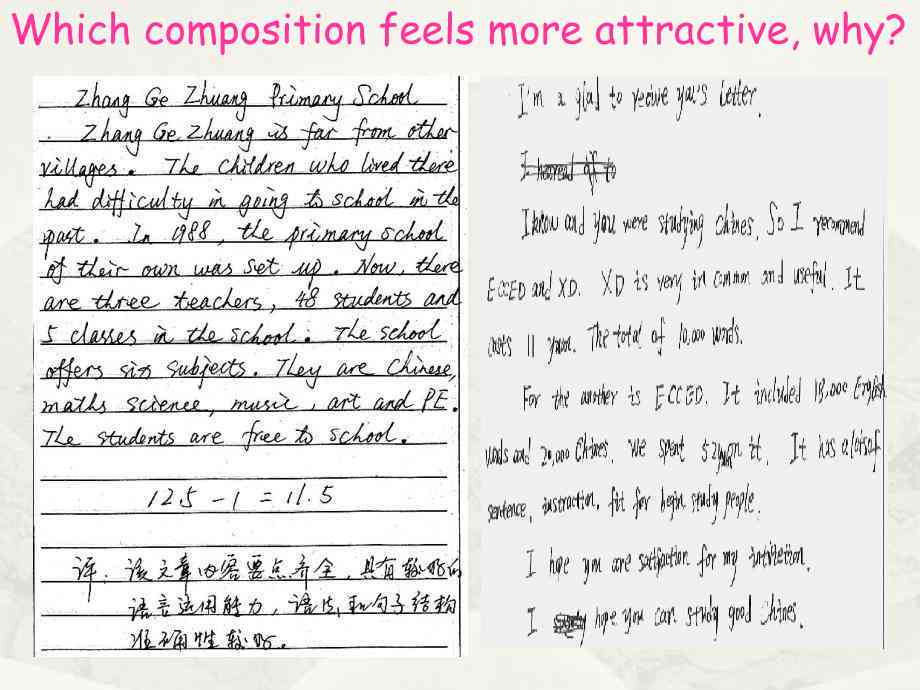 Which composition feels more attractive, why?
Zhang Ge Zhuang Primary School
. Zhang Ge Zhuang is far from other
villages. The children who lived there
had difficulty in going to school in the
past. In 1988, the primary school
of their own was set up. Now, there
are three teachers, 48 students and
5 classes in the school. The school
offers six subjects. They are Chinese,
maths science, music, art and PE.
The students are free to school.
12.5 - 1 = 11.5
评. 该文章内容要点齐全, 具有较好的
语言运用能力, 语法和句子结构
准确性较好.
I'm a glad to recive you's letter.
I
I know and you were studying Chines. So I recommend
ECCED and XD. XD is very in common and useful. It
costs 11 yuan. The total of 10,000 words.
For the another is ECCED. It included 18,000 English
words and 20,000 Chines. We spent 52yuan it. It has a lots of
sentence, instruction, fit for begin study people.
I hope you are satisfaction for my
I hope you can study good Chines.